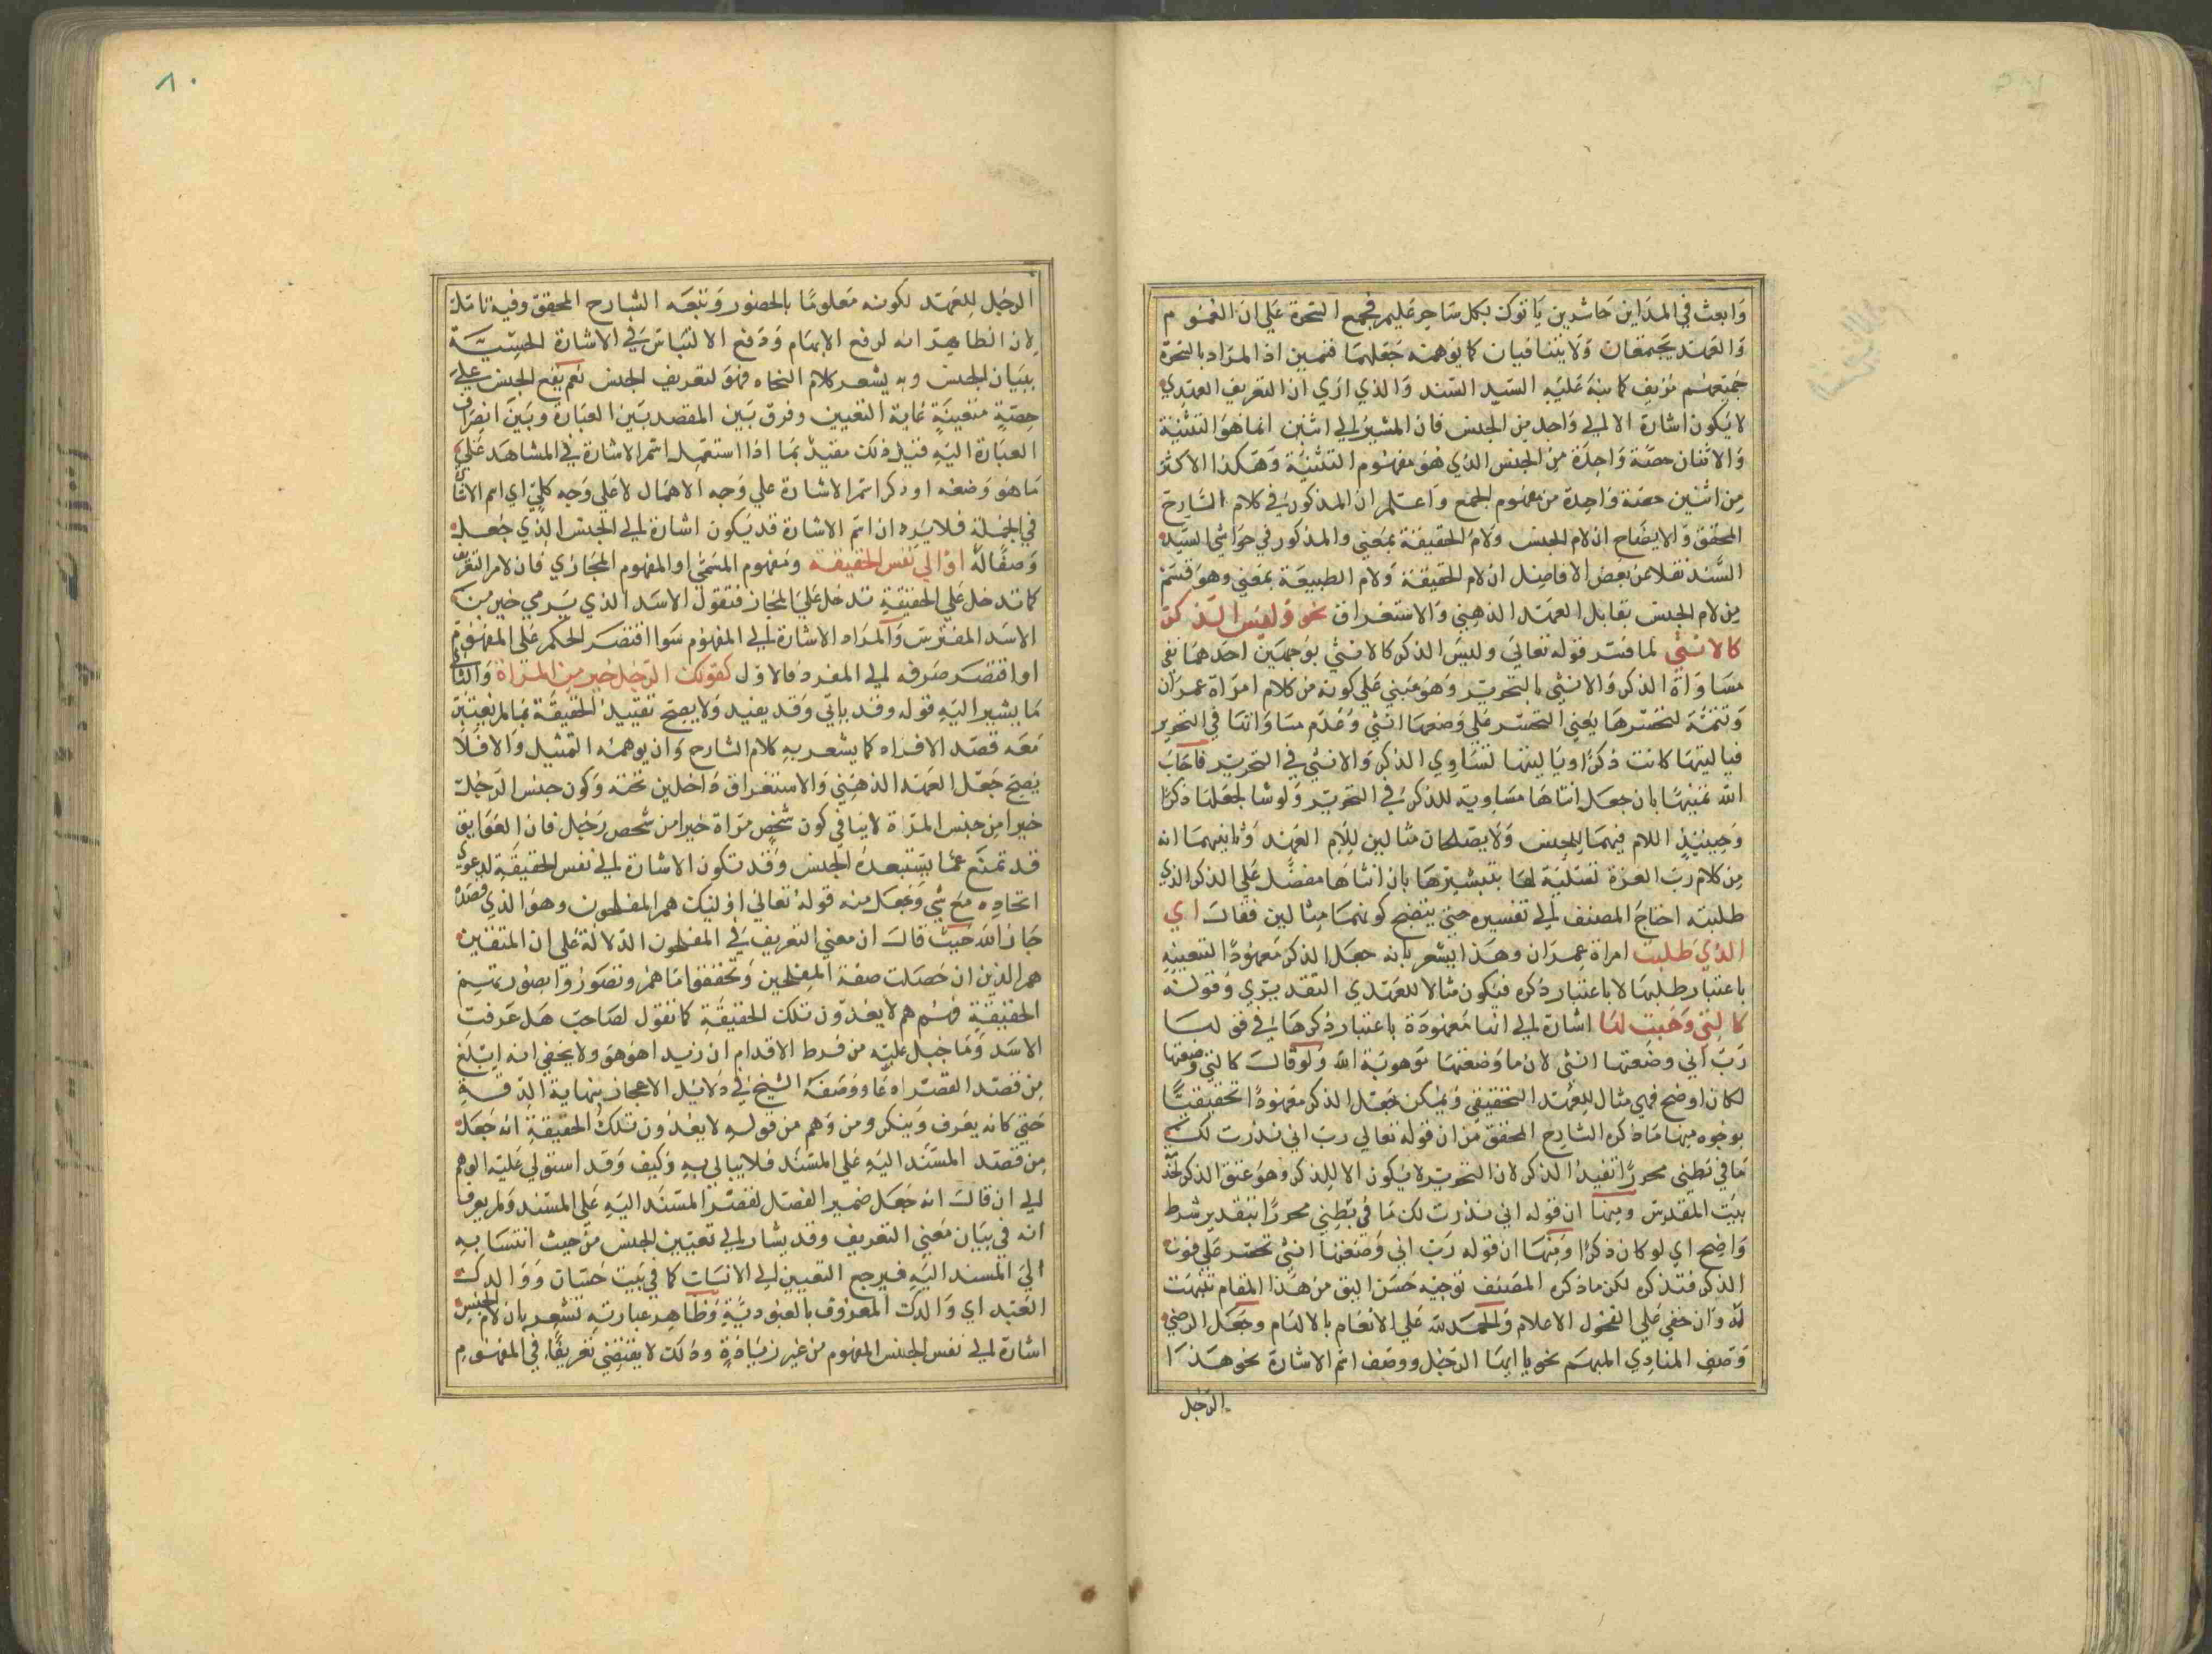 وابعث في المداين حاشرين ياتوك بكل ساحر عليم فجمع السحرة علي ان العموم
والعهد يجتمعان ولا يتنافيان كما توهمه جعلهما فنمين اذ المراد بالسحرة
جميعهم مزيف كما نبه عليه السيد السند والذي اري ان التعريف العهدي
لا يكون اشارة الا الي واحد من الجنس فان المشير الي اثنين انما هو التثنية
والاثنان حصة واحدة من الجنس الذي هو مفهوم التثنية وهكذا الاكثر
من اثنين حصة واحدة من مفهوم الجمع واعلم ان المذكور في كلام الشارح
المحقق والايضاح ان لام الجنس ولام الحقيقة بمعني والمذكور في حواشي السيد
السند نقلا عن بعض الافاضل ان لام الحقيقة ولام الطبيعة بمعني وهو قسم
من لام الجنس يقابل العهد الذهني والاستغراق نحو وليس الذكر
كالانثي لما فسر قوله تعالي وليس الذكر كالانثي بوجهين احدهما نفي
مساواة الذكر والانثي بالتحرير وهو مبني علي كونه من كلام امراة عمران
وتتمة لتحسرها يعني التحسر علي وضعها انثي وعدم مساواتها في التحرير
فياليتها كانت ذكرا وياليتها تساوي الذكر والانثي في التحرير فاجاب
الله تمنيها بان جعل انثاها مساوية للذكر في التحرير ولو شا لجعلها ذكرا
وحينيذ اللام فيهما للجنس ولا يصلحان مثالين للام العهد وثانيهما انه
من كلام رب العزة تسلية لها بتبشيرها بان انثاها مفضل علي الذكر الذي
طلبته احتاج المصنف الي تفسيره حتي يتضح كونهما مثالين فقال اي
الذي طلبت امراة عمران وهذا يشعر بانه جعل الذكر معهودا لتعيينه
باعتبار طلبها لا باعتبار ذكره فيكون مثالا للعهدي التقديري وقوله
كالتي وهبت لها اشارة الي انها معهودة باعتبار ذكرها في قولها
رب اني وضعتها انثي لان ما وضعتها موهوبة الله ولو قال كالتي وضعتها
لكان اوضح فهي مثال للعهد التحقيقي ويمكن جعل الذكر معهودا تحقيقيا
بوجوه منها ما ذكره الشارح المحقق من ان قوله تعالي رب اني نذرت لك
ما في بطني محررا تفيد الذكر لان التحرير لا يكون الا للذكر وهو عتق الذكر
بيت المقدس ومنها ان قوله اني نذرت لك ما في بطني محررا بتقدير شرط
واضح اي لو كان ذكرا ومنها ان قوله رب اني وضعتها انثي تحسر علي فوت
الذكر فتذكره لكن ما ذكره المصنف توجيه حسن اليق من هذا المقام تنبهت
له وان خفي علي الفحول الاعلام والحمد لله علي الانعام بالالهام وجعل الرضي
وصف المنادي المبهم نحو يا ايها الرجل ووصف اسم الاشارة نحو هذا
الرجل
٨٠
الرجل للعهد لكونه معلوما بالحضور وتبعه الشارح المحقق وفيه تامل
لان الظاهر انه لرفع الابهام ودفع الالتباس في الاشارة الحسية
ببيان الجنس وبه يشعر كلام النحاه فهو لتعريف الجنس نعم يقع الجنس علي
حصة متعينة غاية التعيين وفرق بين المقصد بين العبارة وبين انصراف
العبارة اليه قيل ذلك مقيد بما اذا استعمل اسم الاشارة في المشاهد علي
ما هو وضعه او ذكر اسم الاشارة علي وجه الاهمال لا علي وجه كلي اي اسم الاشارة
في الجملة فلا يرد ان اسم الاشارة قد يكون اشارة الي الجنس الذي جعل
وصفا له او الي نفس الحقيقة ومفهوم المسمي او المفهوم المجازي فان لام التعريف
كما تدخل علي الحقيقة تدخل علي المجاز فتقول الاسد الذي يرمي خير من
الاسد المفترس والمراد الاشارة الي المفهوم سوا اقتصر الحكم علي المفهوم
او اقتصر صرفه الي المفرد فالاول كقولك الرجل خير من المراة والثاني
ما يشير اليه قوله وقد ياتي وقد يفيد ولا يصح تقييد الحقيقة بما لم يعتبر
معه قصد الافراد كما يشعر به كلام الشارح وان يوهمه التمثيل والا فلا
يصح جعل العهد الذهني والاستغراق داخلين تحته وكون جنس الرجل
خيرا من جنس المراة لا ينافي كون شخص مراة خيرا من شخص رجل فان العوايق
قد تمنع عما يستتبعه الجنس وقد تكون الاشارة الي نفس الحقيقة لدعوي
اتحاده مع شي وتجعل منه قوله تعالي اوليك هم المفلحون وهو الذي قصد
جار الله حيث قال ان معني التعريف في المفلحون الدلالة علي ان المتقين
هم الذين ان حصلت صفة المفلحين وتحققوا ما هم وتصوروا بصورتهم
الحقيقية فهم هم لا يعدون تلك الحقيقة كما تقول لصاحبك هل عرفت
الاسد وما جبل عليه من فرط الاقدام ان زيدا هو هو ولا يخفي انه ابلغ
من قصد القصر ادعا ووصفه الشيخ في دلايل الاعجاز بنهاية الدقة
حتي كانه يعرف وينكر ومن وهم من قوله لا يعدون تلك الحقيقة انه جعل
من قصد المسند اليه علي المسند فلا يبالي به وكيف وقد استولي عليه الوهم
الي ان قال انه جعل ضمير الفصل لقصر المسند اليه علي المسند ولم يعرف
انه في بيان معني التعريف وقد يشار الي تعيين الجنس من حيث انتسابه
الي المسند اليه فيرجع التعيين الي الانتساب كما في بيت حسان ووالدك
العبد اي والدك المعروف بالعبودية وظاهر عبارته تشعر بان لام الجنس
اشارة الي نفس الجنس المفهوم من غير زيادة وذلك لا يقتضي تعريفا في المفهوم